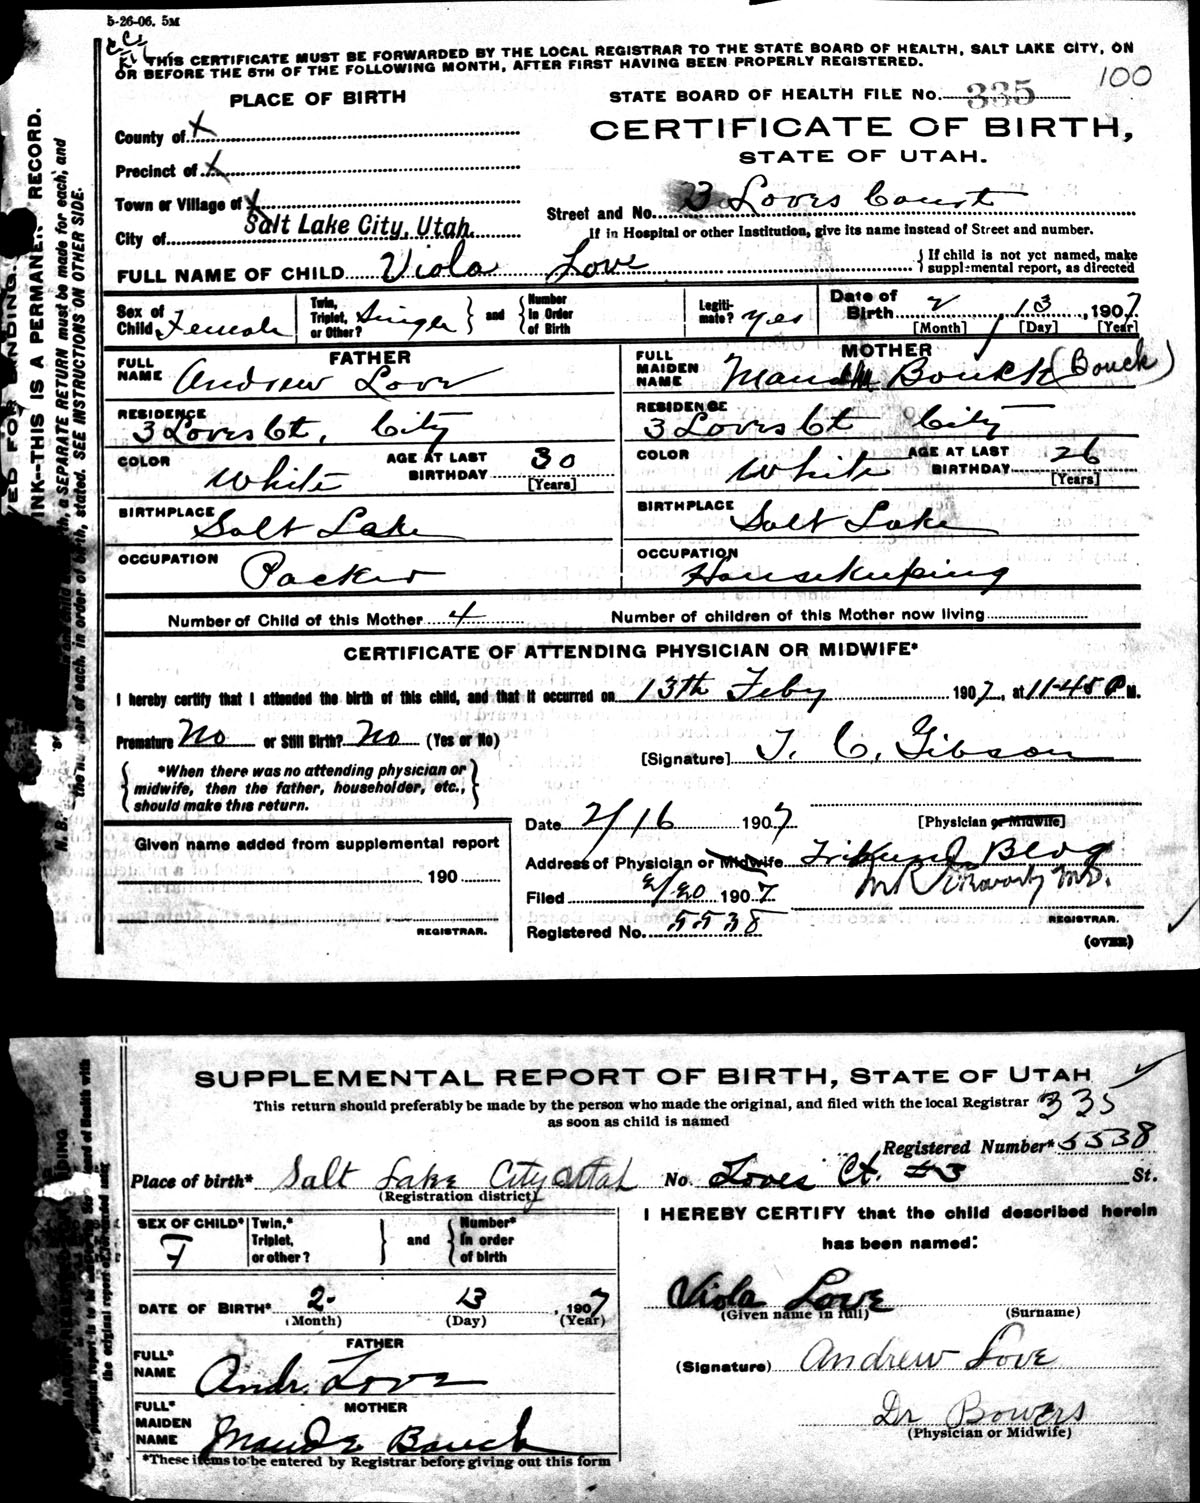 5-26-06. 5M
THIS CERTIFICATE MUST BE FORWARDED BY THE LOCAL REGISTRAR TO THE STATE BOARD OF HEALTH, SALT LAKE CITY, ON
OR BEFORE THE 5TH OF THE FOLLOWING MONTH, AFTER FIRST HAVING BEEN PROPERLY REGISTERED.
100
PLACE OF BIRTH
STATE BOARD OF HEALTH FILE No. 335
County of X
CERTIFICATE OF BIRTH,
Precinct of X
STATE OF UTAH.
Town or Village of X
Street and No. 3 Loves Court
City of Salt Lake City, Utah.
If in Hospital or other Institution, give its name instead of Street and number.
FULL NAME OF CHILD Viola Love
If child is not yet named, make supplemental report, as directed
Sex of Child Female
Twin, Triplet, or Other? Single
and
Number In Order of Birth
Legiti-mate? Yes
Date of Birth 2 13, 1907
[Month] [Day] [Year]
FATHER
FULL NAME Andrew Love
RESIDENCE 3 Loves Ct. City
COLOR White AGE AT LAST BIRTHDAY 30 [Years]
BIRTHPLACE Salt Lake
OCCUPATION Packer
MOTHER
FULL MAIDEN NAME Maud Bouck (Bouck)
RESIDENCE 3 Loves Ct City
COLOR White AGE AT LAST BIRTHDAY 26 [Years]
BIRTHPLACE Salt Lake
OCCUPATION Housekeeping
Number of Child of this Mother 4 Number of children of this Mother now living
CERTIFICATE OF ATTENDING PHYSICIAN OR MIDWIFE*
I hereby certify that I attended the birth of this child, and that it occurred on 13th Feby 1907, at 11-48 P M.
Premature No or Still Birth? No (Yes or No)
[Signature] T. C. Gibson
*When there was no attending physician or
midwife, then the father, householder, etc.,
should make this return.
Date 2/16 1907
[Physician or Midwife]
Given name added from supplemental report
Address of Physician or Midwife Bldg
190
Filed 2/20 1907
REGISTRAR.
Registered No. 5538
REGISTRAR.
(OVER)
INK--THIS IS A PERMANENT RECORD.
a SEPARATE RETURN must be made for each, and
of each, in order of birth, stated. SEE INSTRUCTIONS ON OTHER SIDE.
N. B.
SUPPLEMENTAL REPORT OF BIRTH, STATE OF UTAH
This return should preferably be made by the person who made the original, and filed with the local Registrar
as soon as child is named
335
Registered Number* 5538
Place of birth* Salt Lake City Utah No. Loves Ct. #3 St.
(Registration district)
SEX OF CHILD* F
Twin,* Triplet, or other?
and
Number* In order of birth
I HEREBY CERTIFY that the child described herein
has been named:
DATE OF BIRTH* 2- 13, 1907
(Month) (Day) (Year)
Viola Love
(Given name in full) (Surname)
FATHER
FULL* NAME Andr. Love
(Signature) Andrew Love
MOTHER
FULL* MAIDEN NAME Maude Bouck
Dr Bowers
(Physician or Midwife)
*These items to be entered by Registrar before giving out this form
the original report of